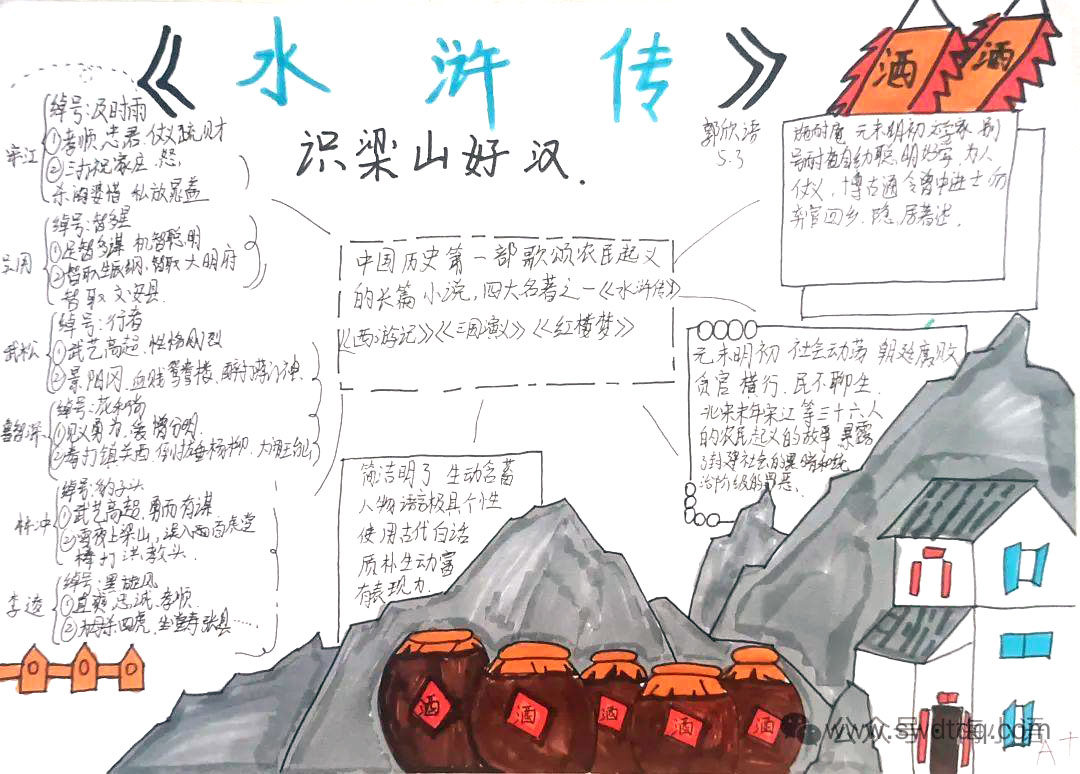 《水浒传》
识梁山好汉.
郭欣洁
5.3
酒
酒
宋江
绰号:及时雨
①孝顺 忠君 仗义疏财
②三打祝家庄 怒
杀阎婆惜 私放晁盖
吴用
绰号:智多星
①足智多谋 机智聪明
②智取生辰纲,智取大明府
智取文安县
武松
绰号:行者
①武艺高超,性格刚烈
②景阳冈,血溅鸳鸯楼,醉打蒋门神
鲁智深
绰号:花和尚
①见义勇为,爱憎分明.
②拳打镇关西 倒拔垂杨柳,大闹五台山
林冲
绰号:豹子头
①武艺高超,勇而有谋
②雪夜上梁山,误入白虎堂
棒打洪教头.
李逵
绰号:黑旋风
①直爽 忠诚 孝顺
②杀四虎,坐堂寿张县……
中国历史第一部歌颂农民起义
的长篇小说,四大名著之一《水浒传》
《西游记》《三国演义》《红楼梦》
施耐庵 元末明初文学家 别
号耐庵自幼聪明好学,为人
仗义,博古通今曾中进士后
弃官回乡,隐居著述.
元末明初 社会动荡 朝廷腐败
贪官横行,民不聊生.
北宋末年宋江等三十六人
的农民起义的故事 暴露
了封建社会的黑暗和统
治阶级的罪恶.
简洁明了 生动含蓄
人物语言极具个性
使用古代白话
质朴生动富
有表现力.
酒
酒
酒
酒
酒
www.swdtdq.com
A+